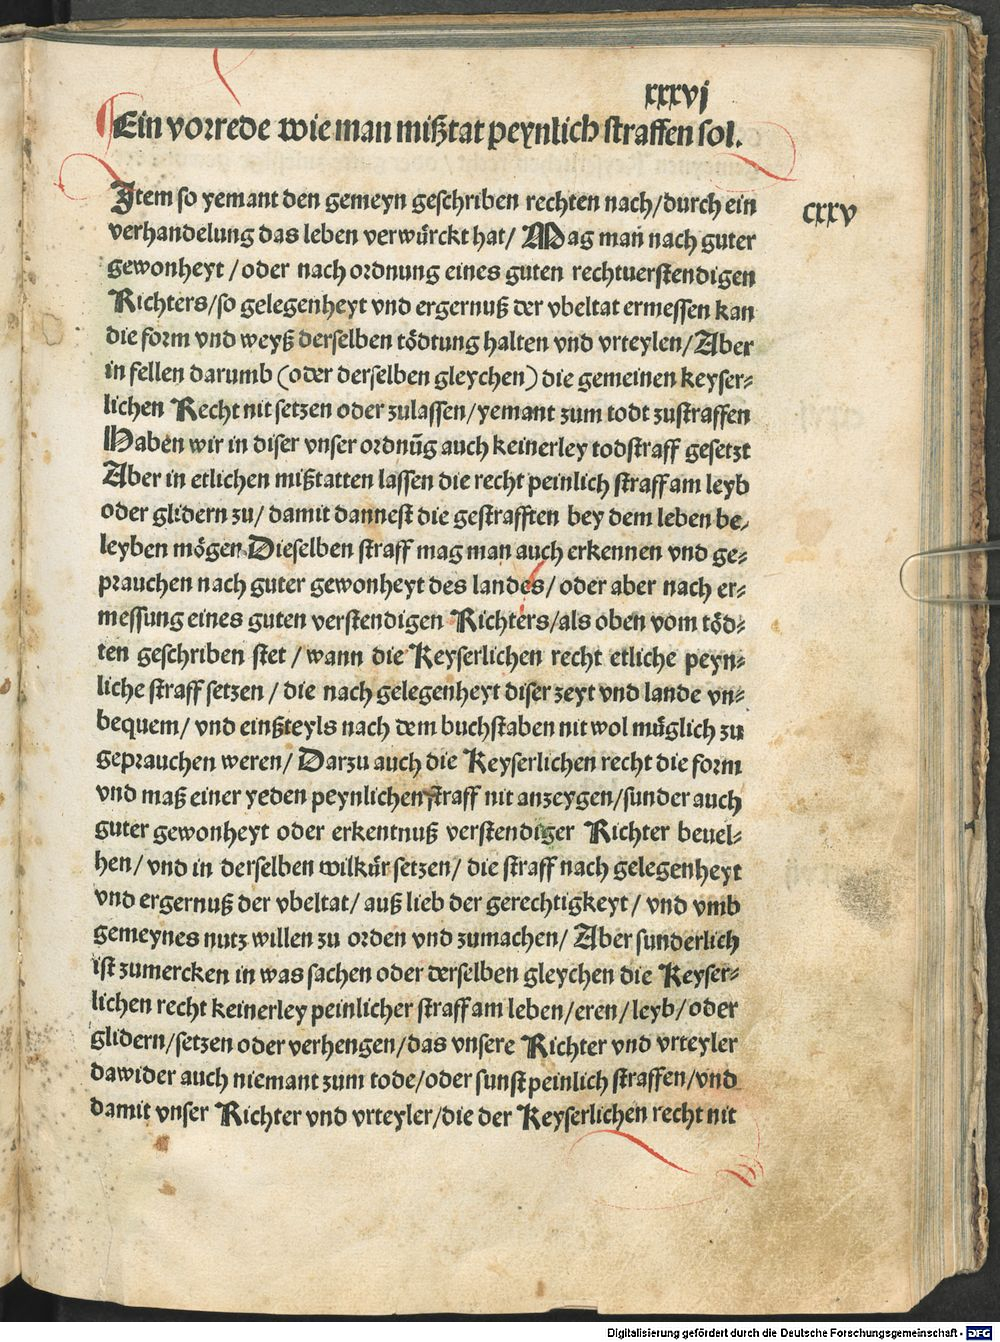 xxxvj
Ein vorrede wie man mißtat peynlich straffen sol.
cxxv
Item so yemant den gemeyn geschriben rechten nach/durch ein
verhandelung das leben verwürckt hat/ Mag man nach guter
gewonheyt /oder nach ordnung eines guten rechtuerstendigen
Richters/so gelegenheyt vnd ergernuß der vbeltat ermessen kan
die form vnd weyß derselben tödtung halten vnd vrteylen/Aber
in fellen darumb (oder derselben gleychen) die gemeinen keyser-
lichen Recht nit setzen oder zulassen/yemant zum todt zustraffen
Haben wir in diser vnser ordnūg auch keinerley todstraff gesetzt
Aber in etlichen mißtatten lassen die recht peinlich straff am leyb
oder glidern zu/ damit dannest die gestrafften bey dem leben be-
leyben mögen Dieselben straff mag man auch erkennen vnd ge-
prauchen nach guter gewonheyt des landes/oder aber nach er-
messung eines guten verstendigen Richters/als oben vom töd-
ten geschriben stet /wann die Keyserlichen recht etliche peyn-
liche straff setzen /die nach gelegenheyt diser zeyt vnd lande vn-
bequem/ vnd einßteyls nach dem buchstaben nit wol müglich zu
geprauchen weren/ Darzu auch die Keyserlichen recht die form
vnd maß einer yeden peynlichen straff nit anzeygen/sunder auch
guter gewonheyt oder erkentnuß verstendiger Richter beuel-
hen/vnd in derselben wilkür setzen/ die straff nach gelegenheyt
vnd ergernuß der vbeltat/ auß lieb der gerechtigkeyt/ vnd vmb
gemeynes nutz willen zu orden vnd zumachen/ Aber sunderlich
ist zumercken in was sachen oder derselben gleychen die Keyser-
lichen recht keinerley peinlicher straff am leben/eren/leyb/oder
glidern/setzen oder verhengen/das vnsere Richter vnd vrteyler
dawider auch niemant zum tode/oder sunst peinlich straffen/vnd
damit vnser Richter vnd vrteyler/die der Keyserlichen recht nit
Digitalisierung gefördert durch die Deutsche Forschungsgemeinschaft - DFG